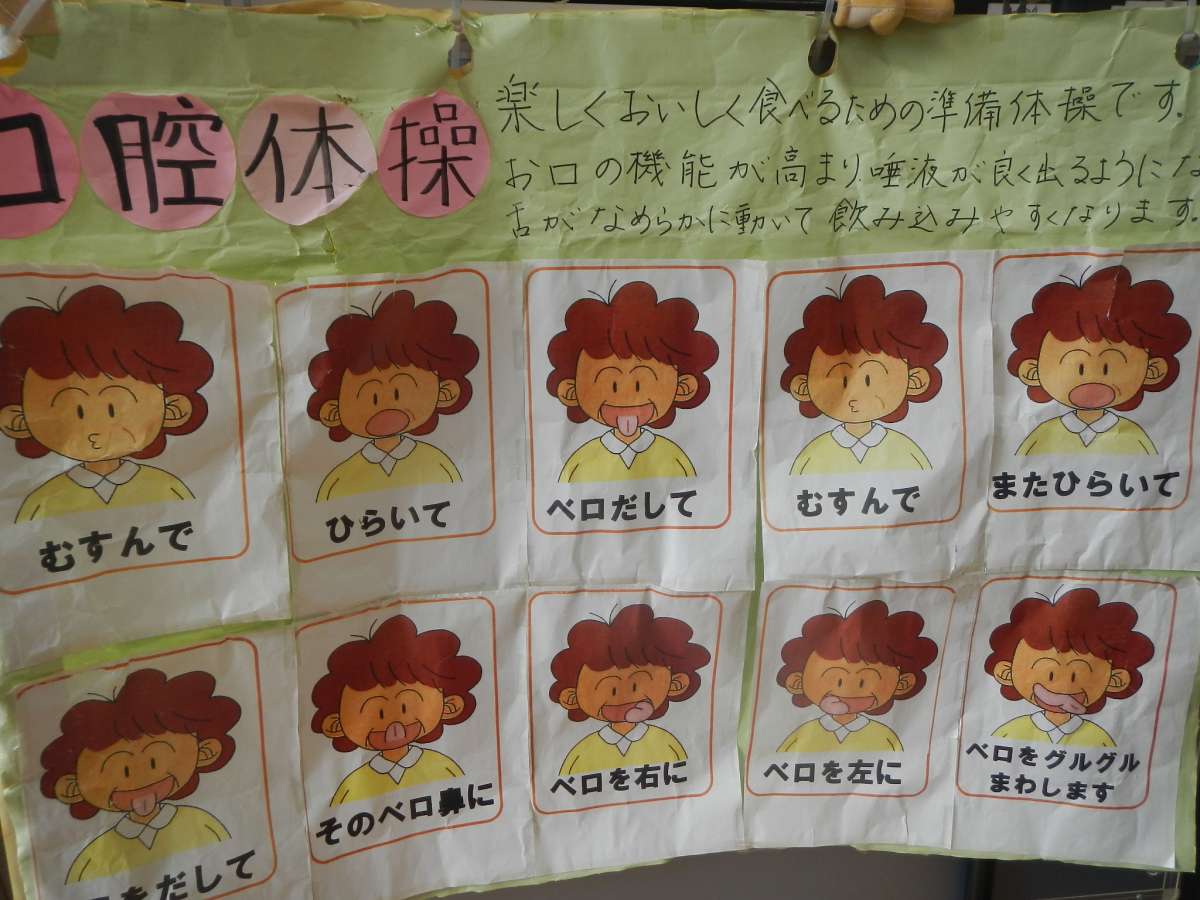 口腔体操
楽しくおいしく食べるための準備体操です.
お口の機能が高まり唾液が良く出るようにな
舌がなめらかに動いて飲み込みやすくなります.
むすんで
ひらいて
ベロだして
むすんで
またひらいて
をだして
そのベロ鼻に
ベロを右に
ベロを左に
ベロをグルグル
まわします